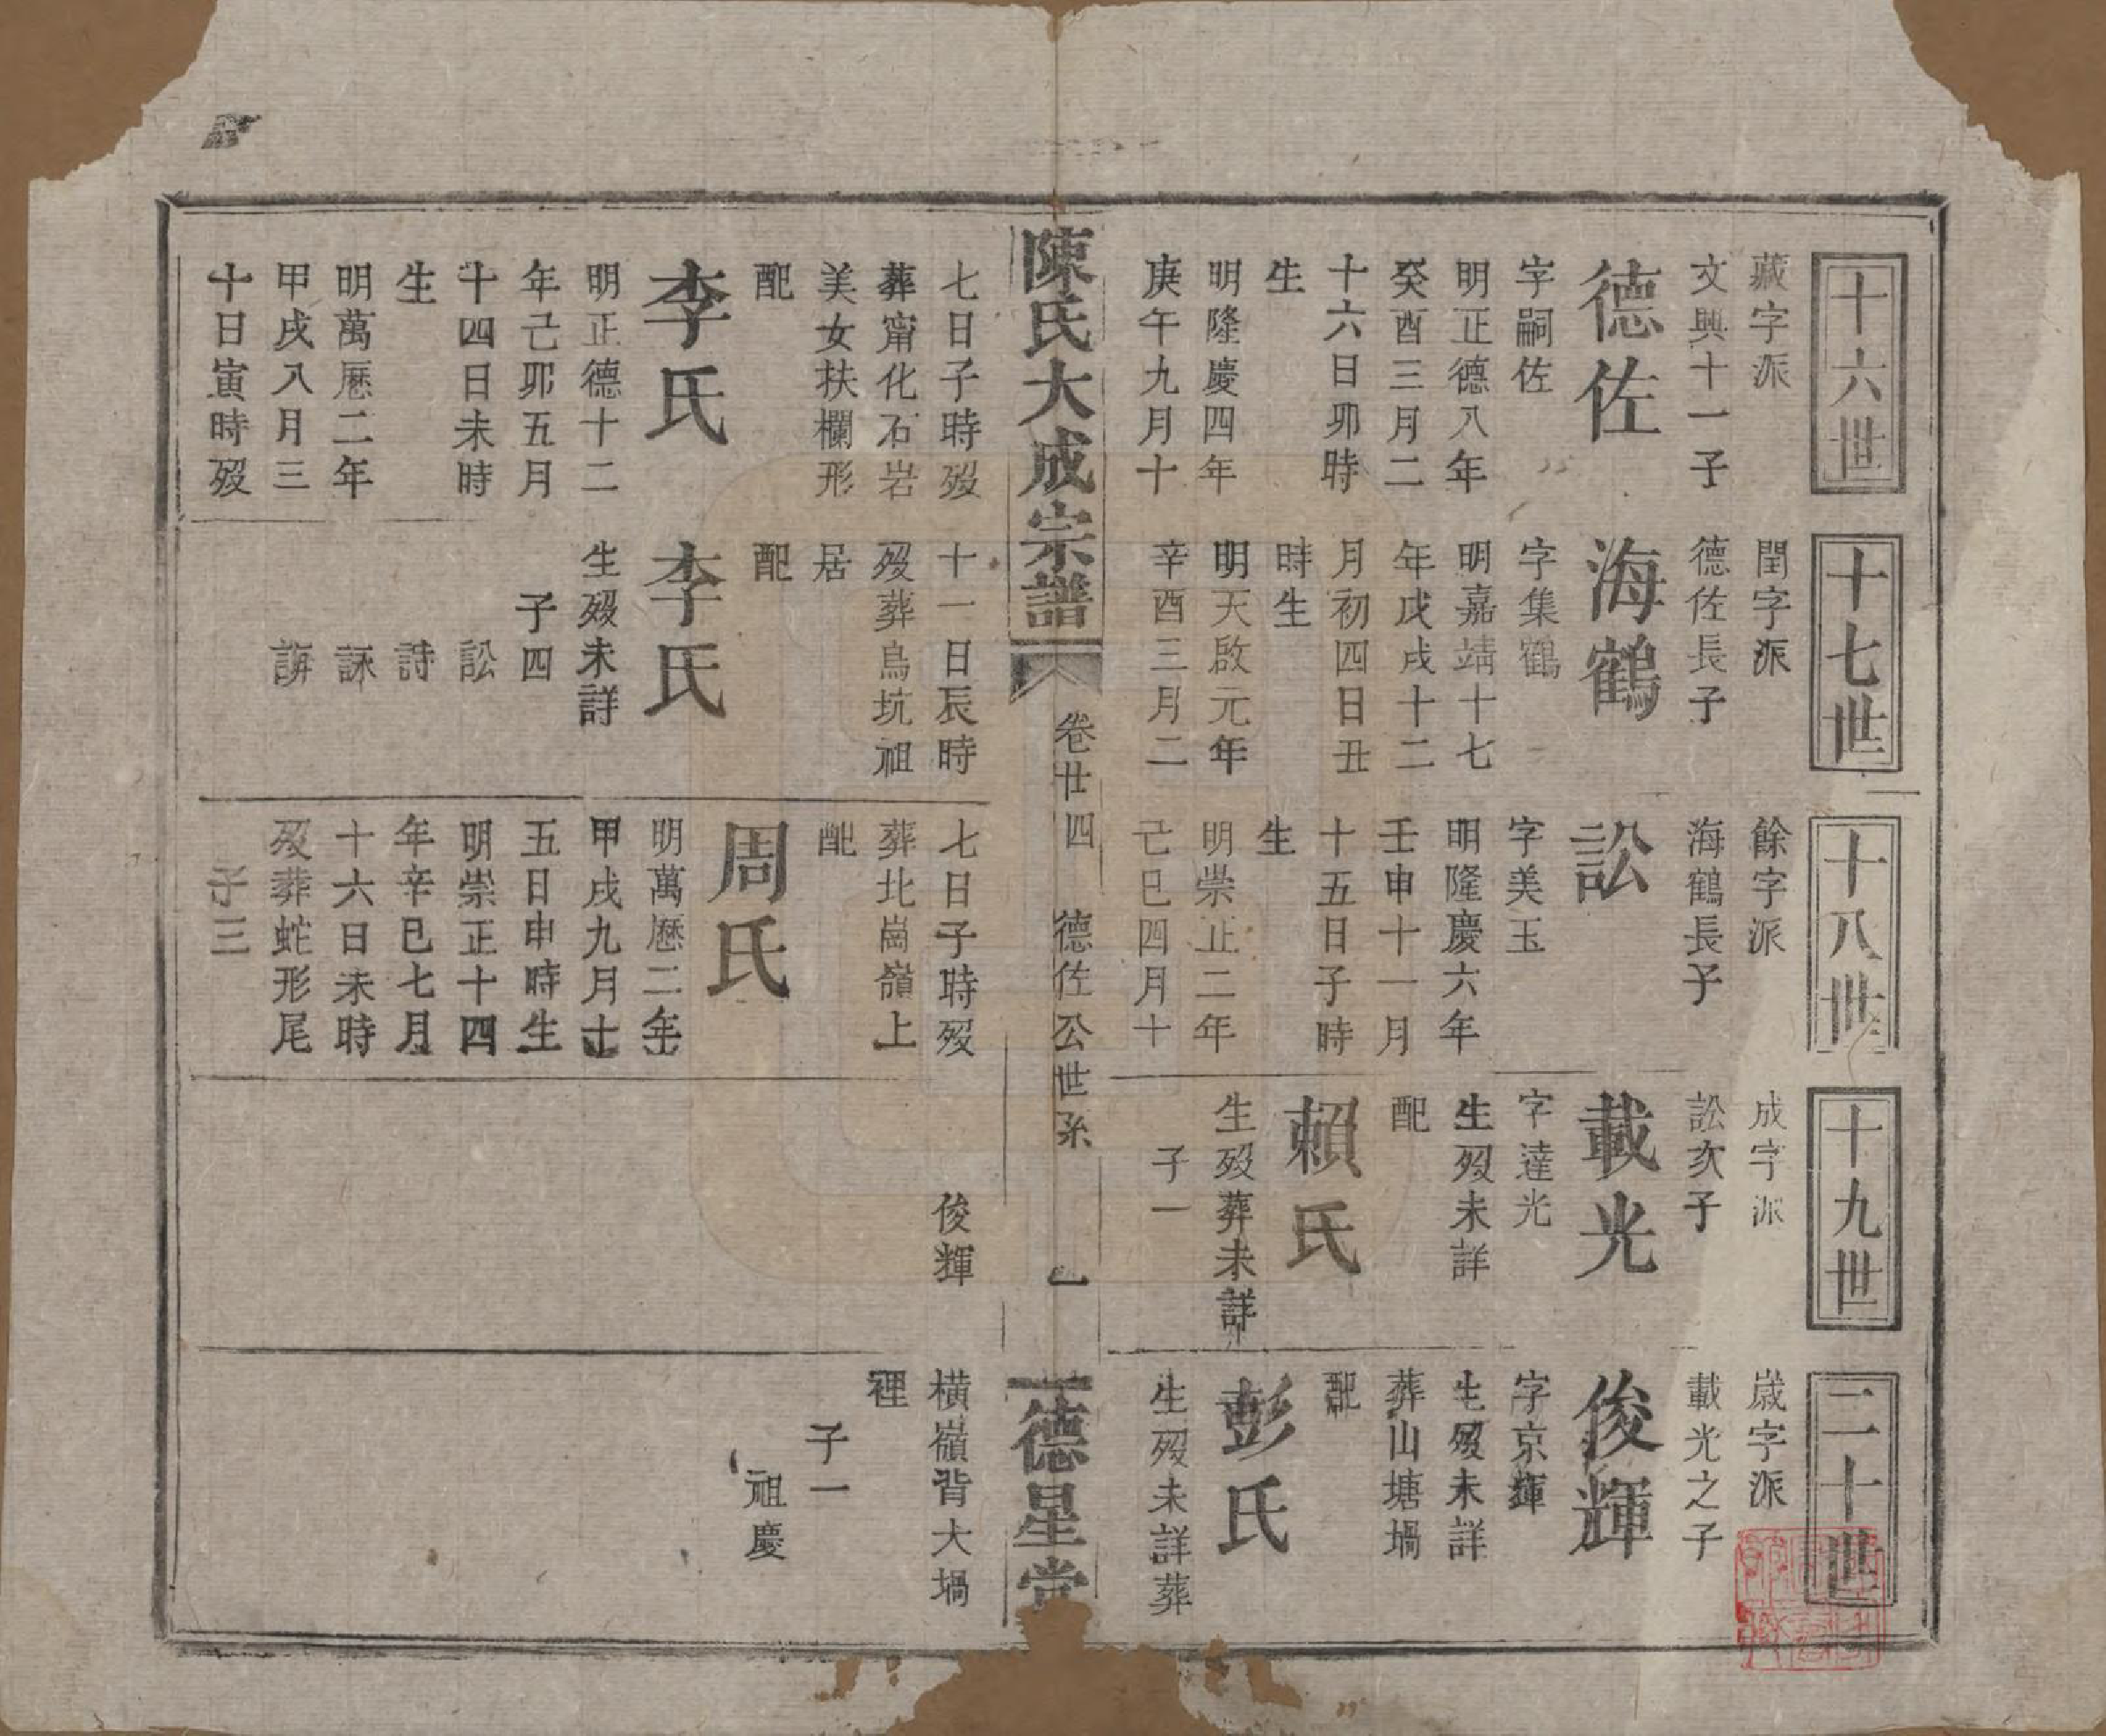 十六世
藏字派
文興十一子
德佐
字嗣佐
明正德八年
癸酉三月二
十六日卯時
生
明隆慶四年
庚午九月十
七日子時歿
葬甯化石岩
美女扶欄形
配
李氏
明正德十二
年己卯五月
十四日未時
生
明萬厯二年
甲戌八月三
十日寅時歿
十七世
閏字派
德佐長子
海鶴
字集鶴
明嘉靖十七
年戊戌十二
月初四日丑
時生
明天啟元年
辛酉三月二
十一日辰時
歿葬鳥坑祖
居
配
李氏
生歿未詳
子四
訟
詩
誺
誁
十八世
餘字派
海鶴長子
訟
字美玉
明隆慶六年
壬申十一月
十五日子時
生
明崇正二年
己巳四月十
七日子時歿
葬北崗嶺上
配
周氏
明萬厯二年
甲戌九月十
五日申時生
明崇正十四
年辛巳七月
十六日未時
歿葬蛇形尾
子三
十九世
成字派
訟次子
載光
字達光
生歿未詳
配
賴氏
生歿葬未詳
子一
俊輝
二十世
歲字派
載光之子
俊輝
字京輝
生歿未詳
葬山塘堝
配
彭氏
生歿未詳葬
橫嶺背大堝
裡
子一
祖慶
陳氏大成宗譜
卷廿四
德佐公世系
一
德星堂